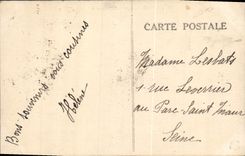 CARTE POSTALE
Bons souvenirs à vous cousines
Hélène
Madame Lesbats
1 rue Leverrier
au Parc Saint Maur
Seine